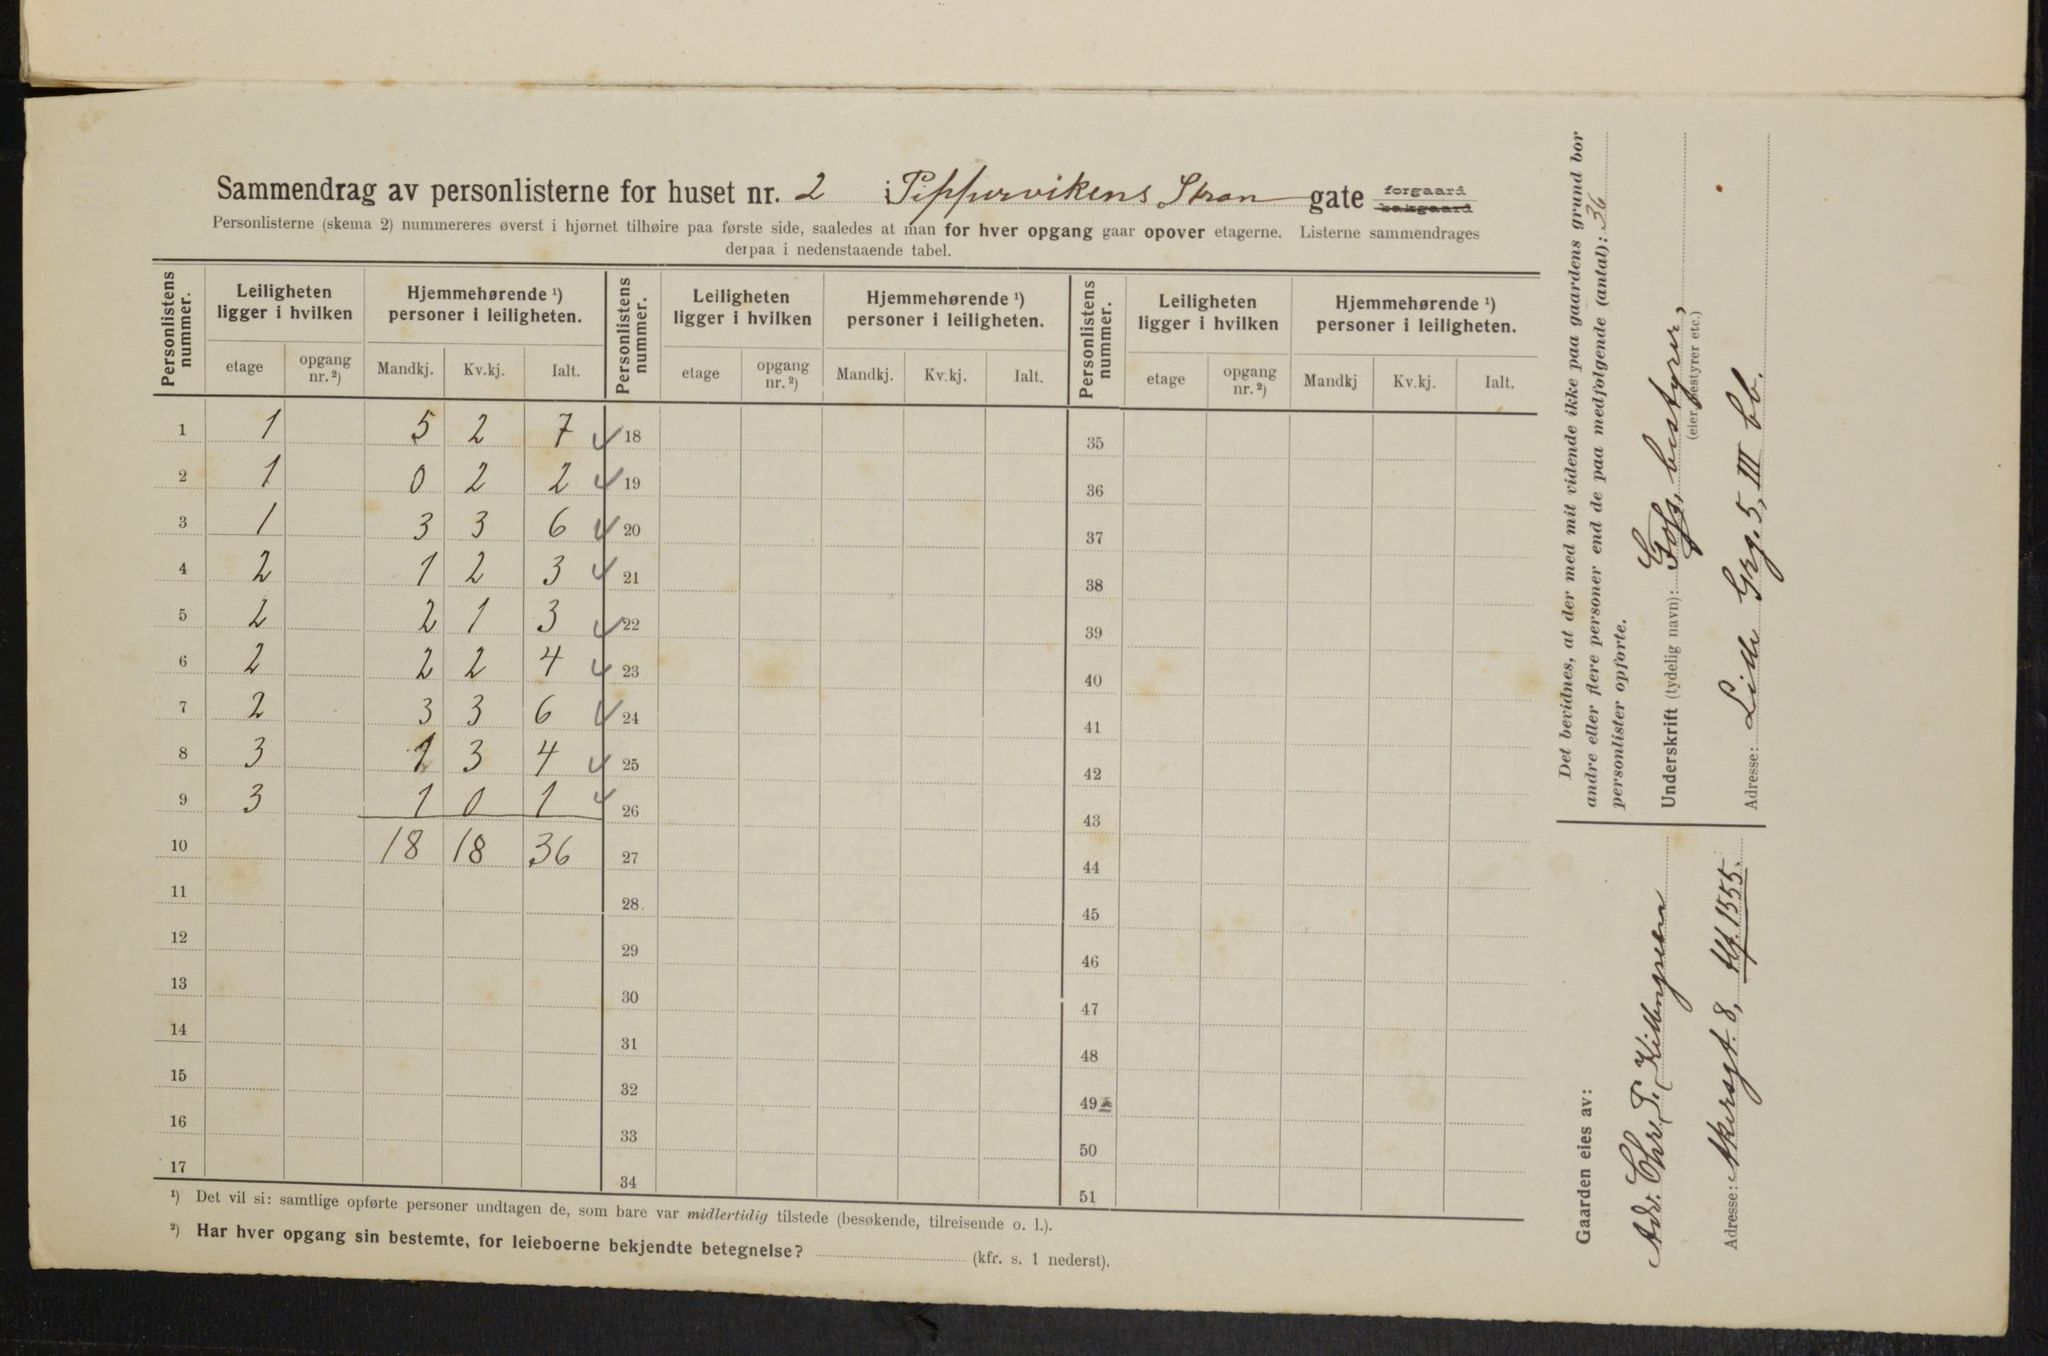 Sammendrag av personlisterne for huset nr. 2 i Pippervikens Stran gate forgaard bakgaard
Personlisterne (skema 2) nummereres øverst i hjørnet tilhøire paa første side, saaledes at man for hver opgang gaar opover etagerne. Listerne sammendrages
derpaa i nedenstaaende tabel.
Personlistens nummer. Leiligheten ligger i hvilken Hjemmehørende ¹) personer i leiligheten. Personlistens nummer. Leiligheten ligger i hvilken Hjemmehørende ¹) personer i leiligheten. Personlistens nummer. Leiligheten ligger i hvilken Hjemmehørende ¹) personer i leiligheten.
etage opgang nr. ²) Mandkj. Kv.kj. Ialt. etage opgang nr. ²) Mandkj. Kv.kj. Ialt. etage opgang nr. ²) Mandkj Kv.kj. Ialt.
1 1 5 2 7 18 35
2 1 0 2 2 19 36
3 1 3 3 6 20 37
4 2 1 2 3 21 38
5 2 2 1 3 22 39
6 2 2 2 4 23 40
7 2 3 3 6 24 41
8 3 1 3 4 25 42
9 3 1 0 1 26 43
10 18 18 36 27 44
11 28. 45
12 29 46
13 30 47
14 31 48
15 32 49
16 33 50
17 34 51
¹) Det vil si: samtlige opførte personer undtagen de, som bare var midlertidig tilstede (besøkende, tilreisende o. l.).
²) Har hver opgang sin bestemte, for leieboerne bekjendte betegnelse? (kfr. s. 1 nederst).
Det bevidnes, at der med mit vidende ikke paa gaardens grund bor
andre eller flere personer end de paa medfølgende (antal): 36
personlister opførte.
Underskrift (tydelig navn): bestyrer,
(eier, bestyrer etc.)
Adresse: Lille Grz. 5, III bb.
Gaarden eies av:
Adv. Chr. P.
Adresse: Akersgt. 8, tlf. 1555.